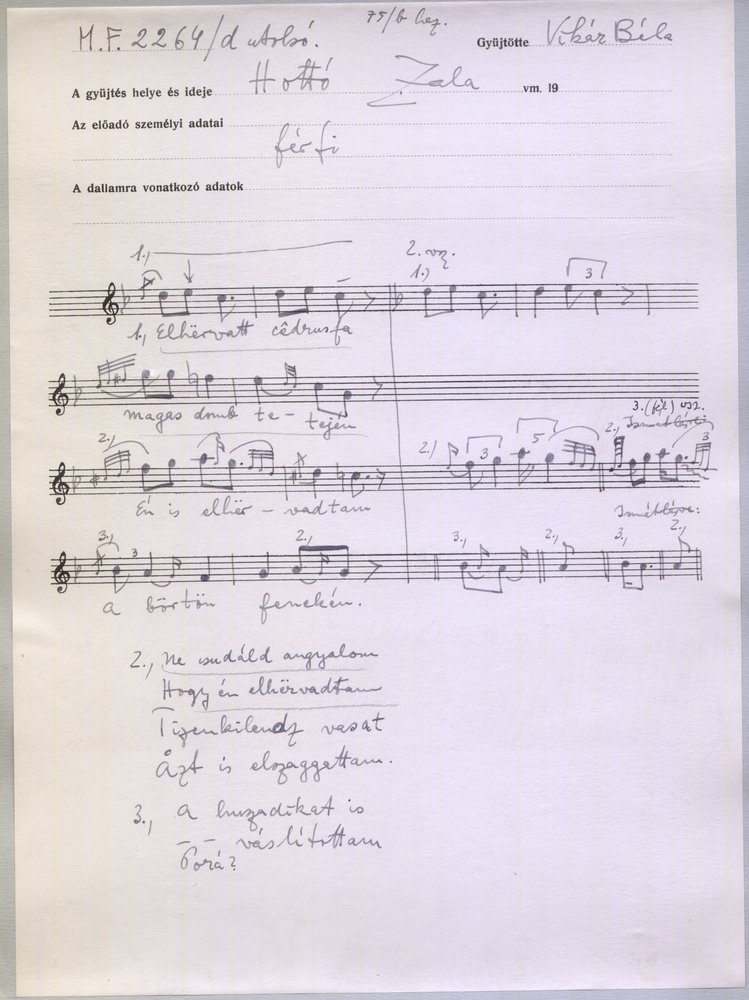 75/b hez.
M.F. 2264/d utolsó.
Gyüjtötte Vikár Béla
A gyüjtés helye és ideje Hottó Zala vm. 19
Az előadó személyi adatai
férfi
A dallamra vonatkozó adatok
1., 2. vsz.
1.) 3
1., Elhërvatt cêdrusfa
magas domb te - tején
3. (fél) vsz.
2., 2.) 3 5 2., 3
Én is elhër - vadtam
3., 3 2., 3., 2., 3., 2.,
a börtön fenekén.
2., Ne csudáld angyalom
Hogy én elhërvadtam
Tizenkilencz vasat
Åzt is elszaggattam.
3., A huszadikat is
– – váslítottam
Porá?